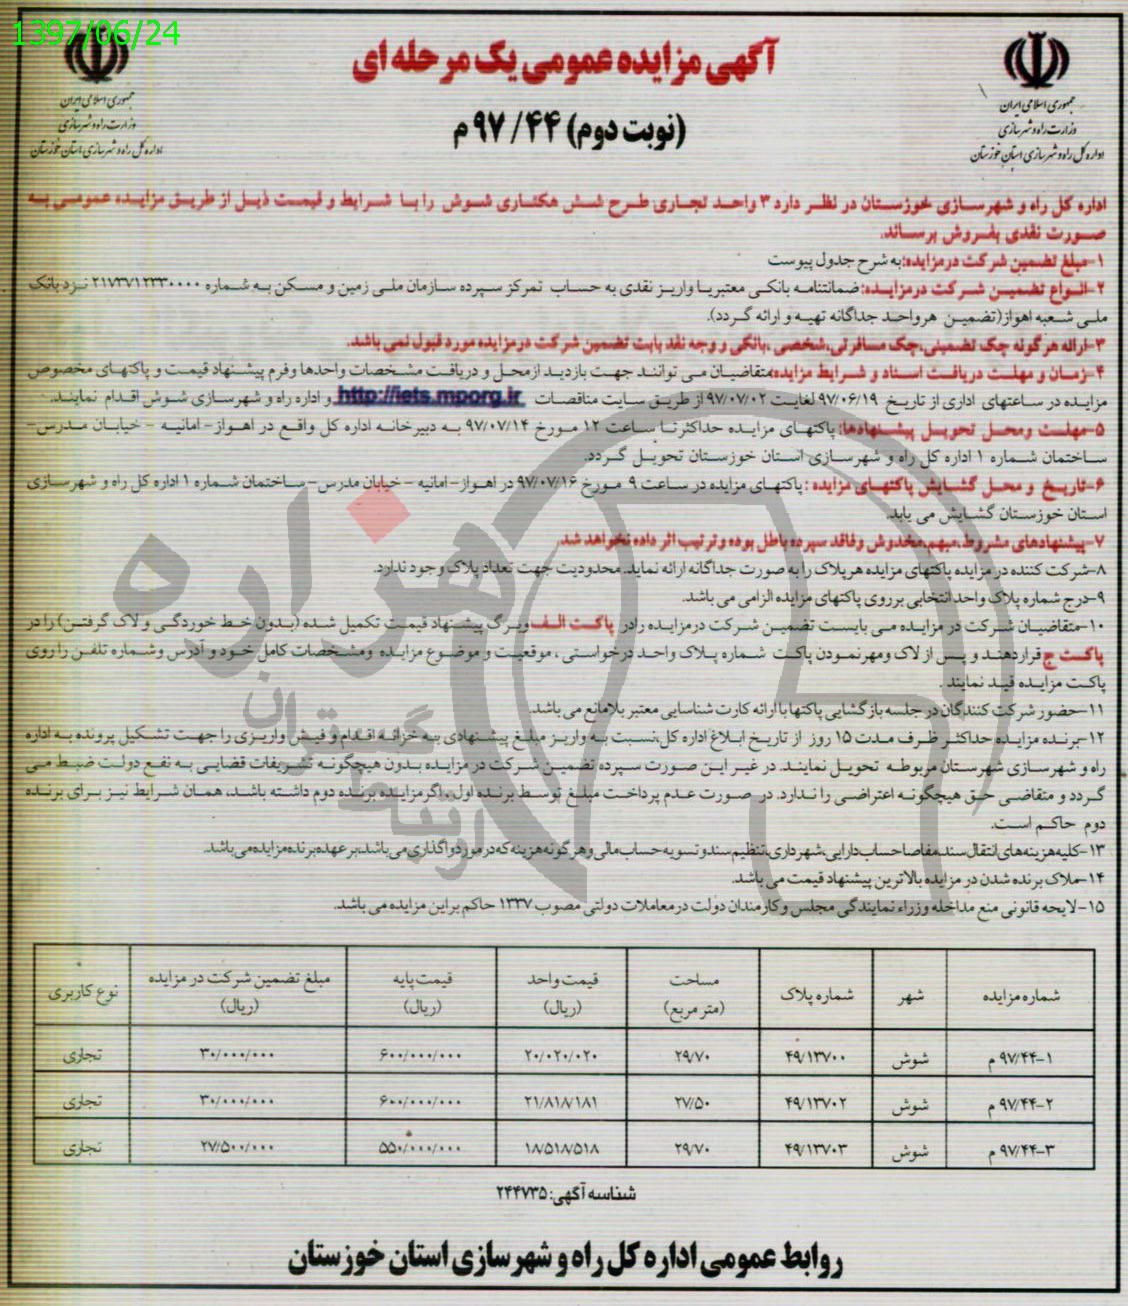 1397/06/24
جمهوری اسلامی ایران
وزارت راه و شهرسازی
اداره کل راه و شهرسازی استان خوزستان
آگهی مزایده عمومی یک مرحله ای
(نوبت دوم) ۹۷/۴۴ م
جمهوری اسلامی ایران
وزارت راه و شهرسازی
اداره کل راه و شهرسازی استان خوزستان
اداره کل راه و شهرسازی خوزستان در نظر دارد ۳ واحد تجاری طرح شش هکتاری شوش را با شرایط و قیمت ذیل از طریق مزایده عمومی به
صورت نقدی بفروش برساند.
۱-مبلغ تضمین شرکت درمزایده:به شرح جدول پیوست
۲-انواع تضمین شرکت درمزایده: ضمانتنامه بانکی معتبریا واریز نقدی به حساب تمرکز سپرده سازمان ملی زمین و مسکن به شماره ۲۱۷۳۷۱۲۳۳۰۰۰۰ نزد بانک
ملی شعبه اهواز(تضمین هرواحد جداگانه تهیه و ارائه گردد).
۳-ارائه هرگونه چک تضمینی،چک مسافرتی،شخصی ،بانکی و وجه نقد بابت تضمین شرکت درمزایده مورد قبول نمی باشد.
۴-زمان و مهلت دریافت اسناد و شرایط مزایده:متقاضیان می توانند جهت بازدید ازمحل و دریافت مشخصات واحدها وفرم پیشنهاد قیمت و پاکتهای مخصوص
مزایده در ساعتهای اداری از تاریخ ۹۷/۰۶/۱۹ لغایت ۹۷/۰۷/۰۲ از طریق سایت مناقصات http://iets.mporg.ir و اداره راه و شهرسازی شوش اقدام نمایند.
۵-مهلت ومحل تحویل پیشنهادها: پاکتهای مزایده حداکثرتا ساعت ۱۲ مورخ ۹۷/۰۷/۱۴ به دبیرخانه اداره کل واقع در اهواز- امانیه - خیابان مدرس-
ساختمان شماره ۱ اداره کل راه و شهرسازی استان خوزستان تحویل گردد.
۶-تاریخ و محل گشایش پاکتهای مزایده : پاکتهای مزایده در ساعت ۹ مورخ ۹۷/۰۷/۱۶ در اهواز- امانیه - خیابان مدرس- ساختمان شماره ۱ اداره کل راه و شهرسازی
استان خوزستان گشایش می یابد.
۷-پیشنهادهای مشروط،مبهم،مخدوش وفاقد سپرده باطل بوده وترتیب اثر داده نخواهد شد.
۸-شرکت کننده در مزایده پاکتهای مزایده هرپلاک را به صورت جداگانه ارائه نماید. محدودیت جهت تعداد پلاک وجود ندارد.
۹-درج شماره پلاک واحد انتخابی برروی پاکتهای مزایده الزامی می باشد.
۱۰-متقاضیان شرکت در مزایده می بایست تضمین شرکت درمزایده رادر پاکت الف وبرگ پیشنهاد قیمت تکمیل شده (بدون خط خوردگی و لاک گرفتن) را در
پاکت ج قراردهند و پس از لاک ومهرنمودن پاکت شماره پلاک واحد درخواستی ، موقعیت و موضوع مزایده ومشخصات کامل خود و آدرس وشماره تلفن را روی
پاکت مزایده قید نمایند .
۱۱-حضور شرکت کنندگان در جلسه بازگشایی پاکتها با ارائه کارت شناسایی معتبر بلامانع می باشد.
۱۲-برنده مزایده حداکثر ظرف مدت ۱۵ روز از تاریخ ابلاغ اداره کل،نسبت به واریز مبلغ پیشنهادی به خزانه اقدام و فیش واریزی را جهت تشکیل پرونده به اداره
راه و شهرسازی شهرستان مربوطه تحویل نمایند. در غیر این صورت سپرده تضمین شرکت در مزایده بدون هیچگونه تشریفات قضایی به نفع دولت ضبط می
گردد و متقاضی حق هیچگونه اعتراضی را ندارد. در صورت عدم پرداخت مبلغ توسط برنده اول، اگرمزایده برنده دوم داشته باشد، همان شرایط نیز برای برنده
دوم حاکم است.
۱۳-کلیه هزینه های انتقال سند،مفاصا حساب دارایی،شهرداری،تنظیم سند و تسویه حساب مالی و هرگونه هزینه که در مورد واگذاری می باشد،بر عهده برنده مزایده می باشد.
۱۴-ملاک برنده شدن در مزایده بالاترین پیشنهاد قیمت می باشد.
۱۵-لایحه قانونی منع مداخله وزراء نمایندگی مجلس وکارمندان دولت درمعاملات دولتی مصوب ۱۳۳۷ حاکم براین مزایده می باشد.
شماره مزایده شهر شماره پلاک مساحت (متر مربع) قیمت واحد (ریال) قیمت پایه (ریال) مبلغ تضمین شرکت در مزایده (ریال) نوع کاربری
۹۷/۴۴-۱ م شوش ۴۹/۱۳۷۰۰ ۲۹/۷۰ ۲۰/۰۲۰/۰۲۰ ۶۰۰/۰۰۰/۰۰۰ ۳۰/۰۰۰/۰۰۰ تجاری
۹۷/۴۴-۲ م شوش ۴۹/۱۳۷۰۲ ۲۷/۵۰ ۲۱/۸۱۸/۱۸۱ ۶۰۰/۰۰۰/۰۰۰ ۳۰/۰۰۰/۰۰۰ تجاری
۹۷/۴۴-۳ م شوش ۴۹/۱۳۷۰۳ ۲۹/۷۰ ۱۸/۵۱۸/۵۱۸ ۵۵۰/۰۰۰/۰۰۰ ۲۷/۵۰۰/۰۰۰ تجاری
شناسه آگهی: ۲۴۴۷۳۵
روابط عمومی اداره کل راه و شهرسازی استان خوزستان
هزاره
ارتباط گستران